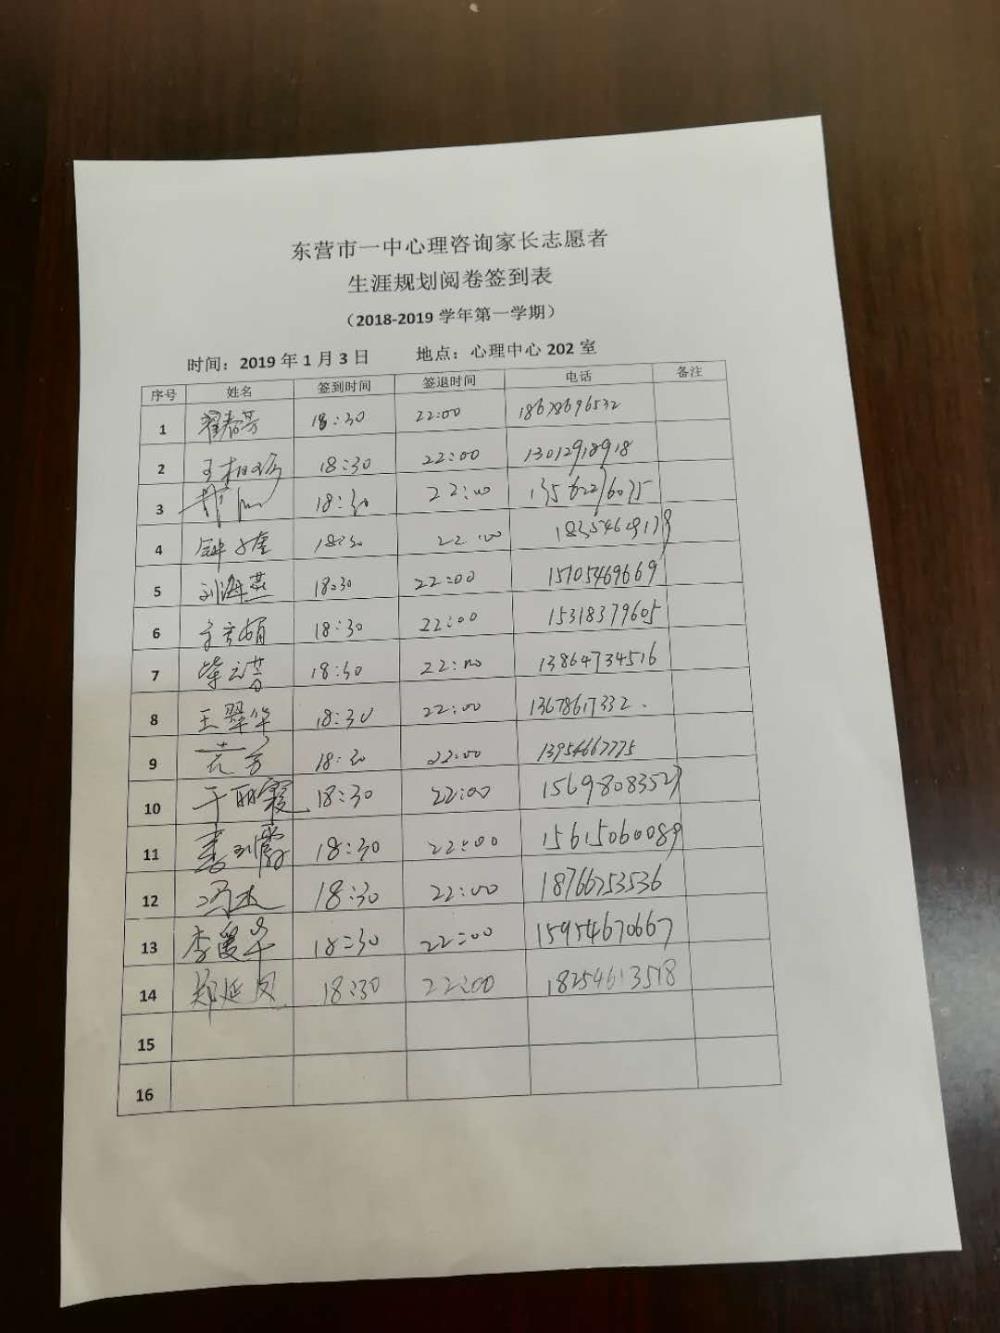 东营市一中心理咨询家长志愿者
生涯规划阅卷签到表
（2018-2019 学年第一学期）
时间：2019 年 1 月 3 日 地点：心理中心 202 室
序号 姓名 签到时间 签退时间 电话 备注
1 翟春芳 18:30 22:00 18678696532
2 18:30 22:00 13012918918
3 18:30 22:00
4 18:30 22:00
5 刘海燕 18:30 22:00 15705469669
6 18:30 22:00 15318379605
7 18:30 22:00 13864734516
8 王翠华 18:30 22:00 13678617332
9 18:30 22:00 13954667775
10 于丽霞 18:30 22:00 15698083527
11 18:30 22:00 15615060089
12 冯杰 18:30 22:00 18766753536
13 18:30 22:00 15954670667
14 郑延凤 18:30 22:00 18254613518
15
16